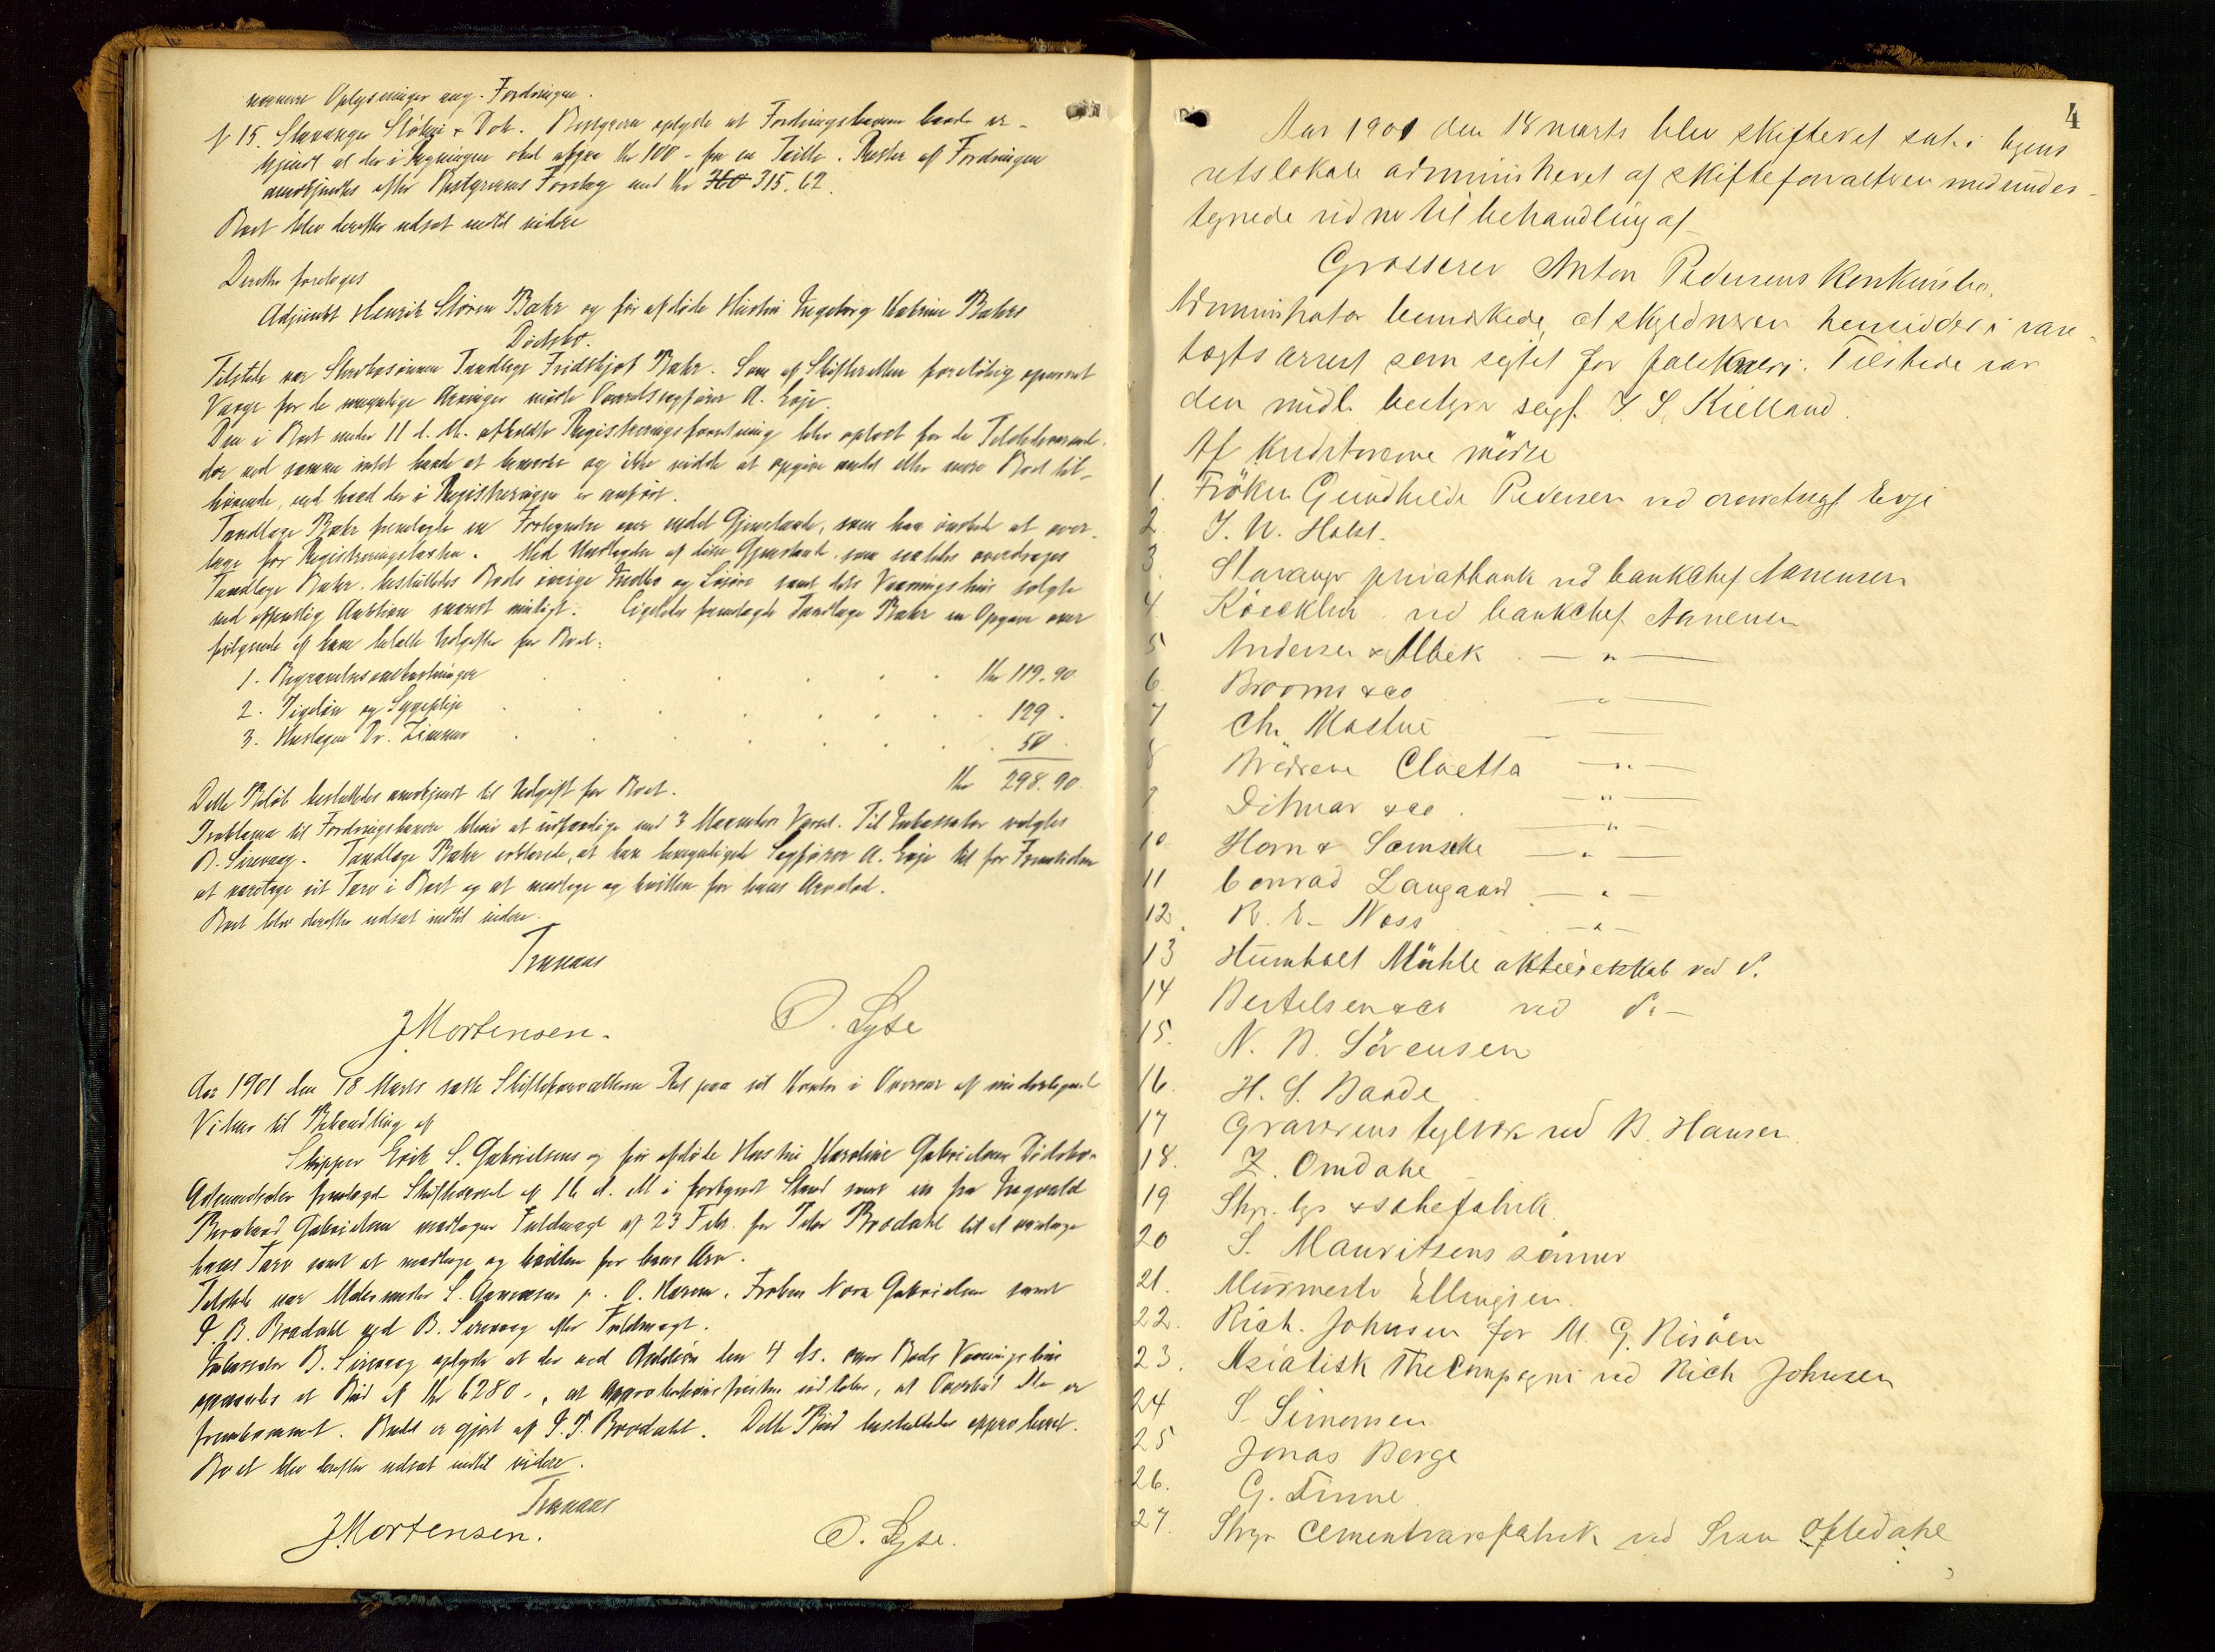 nærmere Oplysninger ang. Fordringen.
№ 15. Stavanger Støberi & Dok. Bestyreren oplyste at Fordringshaveren havde er-
kjendt at der i Regningen skal afgaa Kr 100 - for en Feiltr. Resten af Fordringen
anerkjendtes efter Bestyrerens Forslag med Kr 315.62.
Boet blev derefter udsat indtil videre
Derefter foretoges
Adjunkt Henrik Støren Bahr og før afdøde Hustru Ingeborg Katrine Bahrs
Dødsbo.
Tilstede var Stervbosønnen Tandlæge Fridthjof Bahr. Som af Skifteretten foreløbig opnævnt
Værge for de umyndige Arvinger mødte Overretssagfører A. Eoje.
Den i Boet under 11 d. M. afholdte Registreringsforretning blev oplæst for de Tilstedeværend
der ved samme intet havde at bemærke og ikke vidste at opgive andet eller mere Boet til-
hørende, end hvad der i Registreringen er anført.
Tandlæge Bahr fremlagde en Fortegnelse over endel Gjenstande, som han ønskede at over-
tage for Registreringstaxten. Med Undtagelse af disse Gjenstande som saaledes overdrages
Tandlæge Bahr besluttedes Boets øvrige Indbo og Løsøre samt dets Vaaningshus solgte
ved offentlig Auktion snarest muligt. Ligeledes fremlagde Tandlæge Bahr en Opgave over
følgende af ham betalte Udgifter for Boet:
1. Begravelsesomkostninger Kr 119.90
2. Pigeløn og Sygepleje 129.
3. Huslægen Dr. Zimmer 50.
Kr 298.90.
Dette Beløb besluttedes anerkjendt til Udgift for Boet.
Proklama til Fordringshavere bliver at udfærdige med 3 Maaneders Varsel. Til Inkassator valgtes
B. Sirevaag. Tandlæge Bahr erklærede, at han bemyndigede Sagfører A. Eoje til for Fremtiden
at varetage sit Tarv i Boet og at modtage og kvittere for hans Arvelod.
Boet blev derefter udsat indtil videre.
Tranaas
J Mortensen. O. Lyse
Aar 1901 den 18 Marts satte Skifteforvalteren Ret paa sit Kontor i Overvær af undertegnede
Vidner til Behandling af
Skipper Erik S. Gabrielsens og før afdøde Hustru Karoline Gabrielsens Dødsbo.
fremlagde Skiftevarsel af 16 d. M i forkyndt Stand samt en fra Ingvald
Bernhard Gabrielsen modtagen Fuldmagt af 23 Febr. for Peder Brodahl til at varetage
hans Tarv samt at modtage og kvittere for hans Arv.
Tilstede var Malermester S. O. Frøken Nora Gabrielsen samt
P. B. Brodahl ved B. Sirevaag efter Fuldmagt.
Inkassator B. Sirevaag oplyste at der ved Auktion den 4 ds. over Boets Vaaningshus
opnaaedes et Bud af Kr 6280 -, at Approbationsfristen udløber, at Overbud ikke er
fremkommet. Budet er gjort af P. B. Brodahl. Dette Bud besluttedes approberet.
Boet blev derefter udsat indtil videre.
Tranaas
J Mortensen. O. Lyse.
4
Aar 1901 den 18 marts blev skifteret sat i byens
retslokale administreret af skifteforvalteren med under-
tegnede vidner til behandling af
Grosserer Anton Pedersens Konkursbo.
Administrator bemærkede, at skyldneren hensidder i vare-
tægtsarrest som sigtet for falskneri. Tilstede var
den midl. bestyrer sagf. J. S. Kielland.
Af kreditorerne mødte
1. Fröken Gundhilde Pedersen ved overretssagf Eoje
2. J. W. Holst.
3. Stavanger privatbank ved bankchef Aanensen
4. Köecklin ved bankchef Aanensen
5 Andersen & Albek — " —
6. Brooms & co — " —
7 Chr. Mastue — —
8 Brödrene Cloetta — " —
9. Ditmar & co. — " —
10 Horn & Samecke — " —
11 Conrad Langaard — " —
12. R. E. Noss — " —
13 Humbolt Mühle aktieselskab ved d.
14 Bertelsen & co ved d. —
15. N. B. Sörensen
16. H. S. Baade
17 Gravarens teglverk ved B. Hansen.
18. Z. Omdahl
19 Stvgr. lys & sæbefabrik
20 S. Mauritzens sönner
21. Murmester Ellingsen.
22. Rich. Johnsen for M. G. Risöen
23. Asiatisk The Compagni ved Rich Johnsen
24 S. Simonsen
25 Jonas Berge
26. G. Finne
27. Stvgr Cementvarefabrik ved Sven Oftedahl